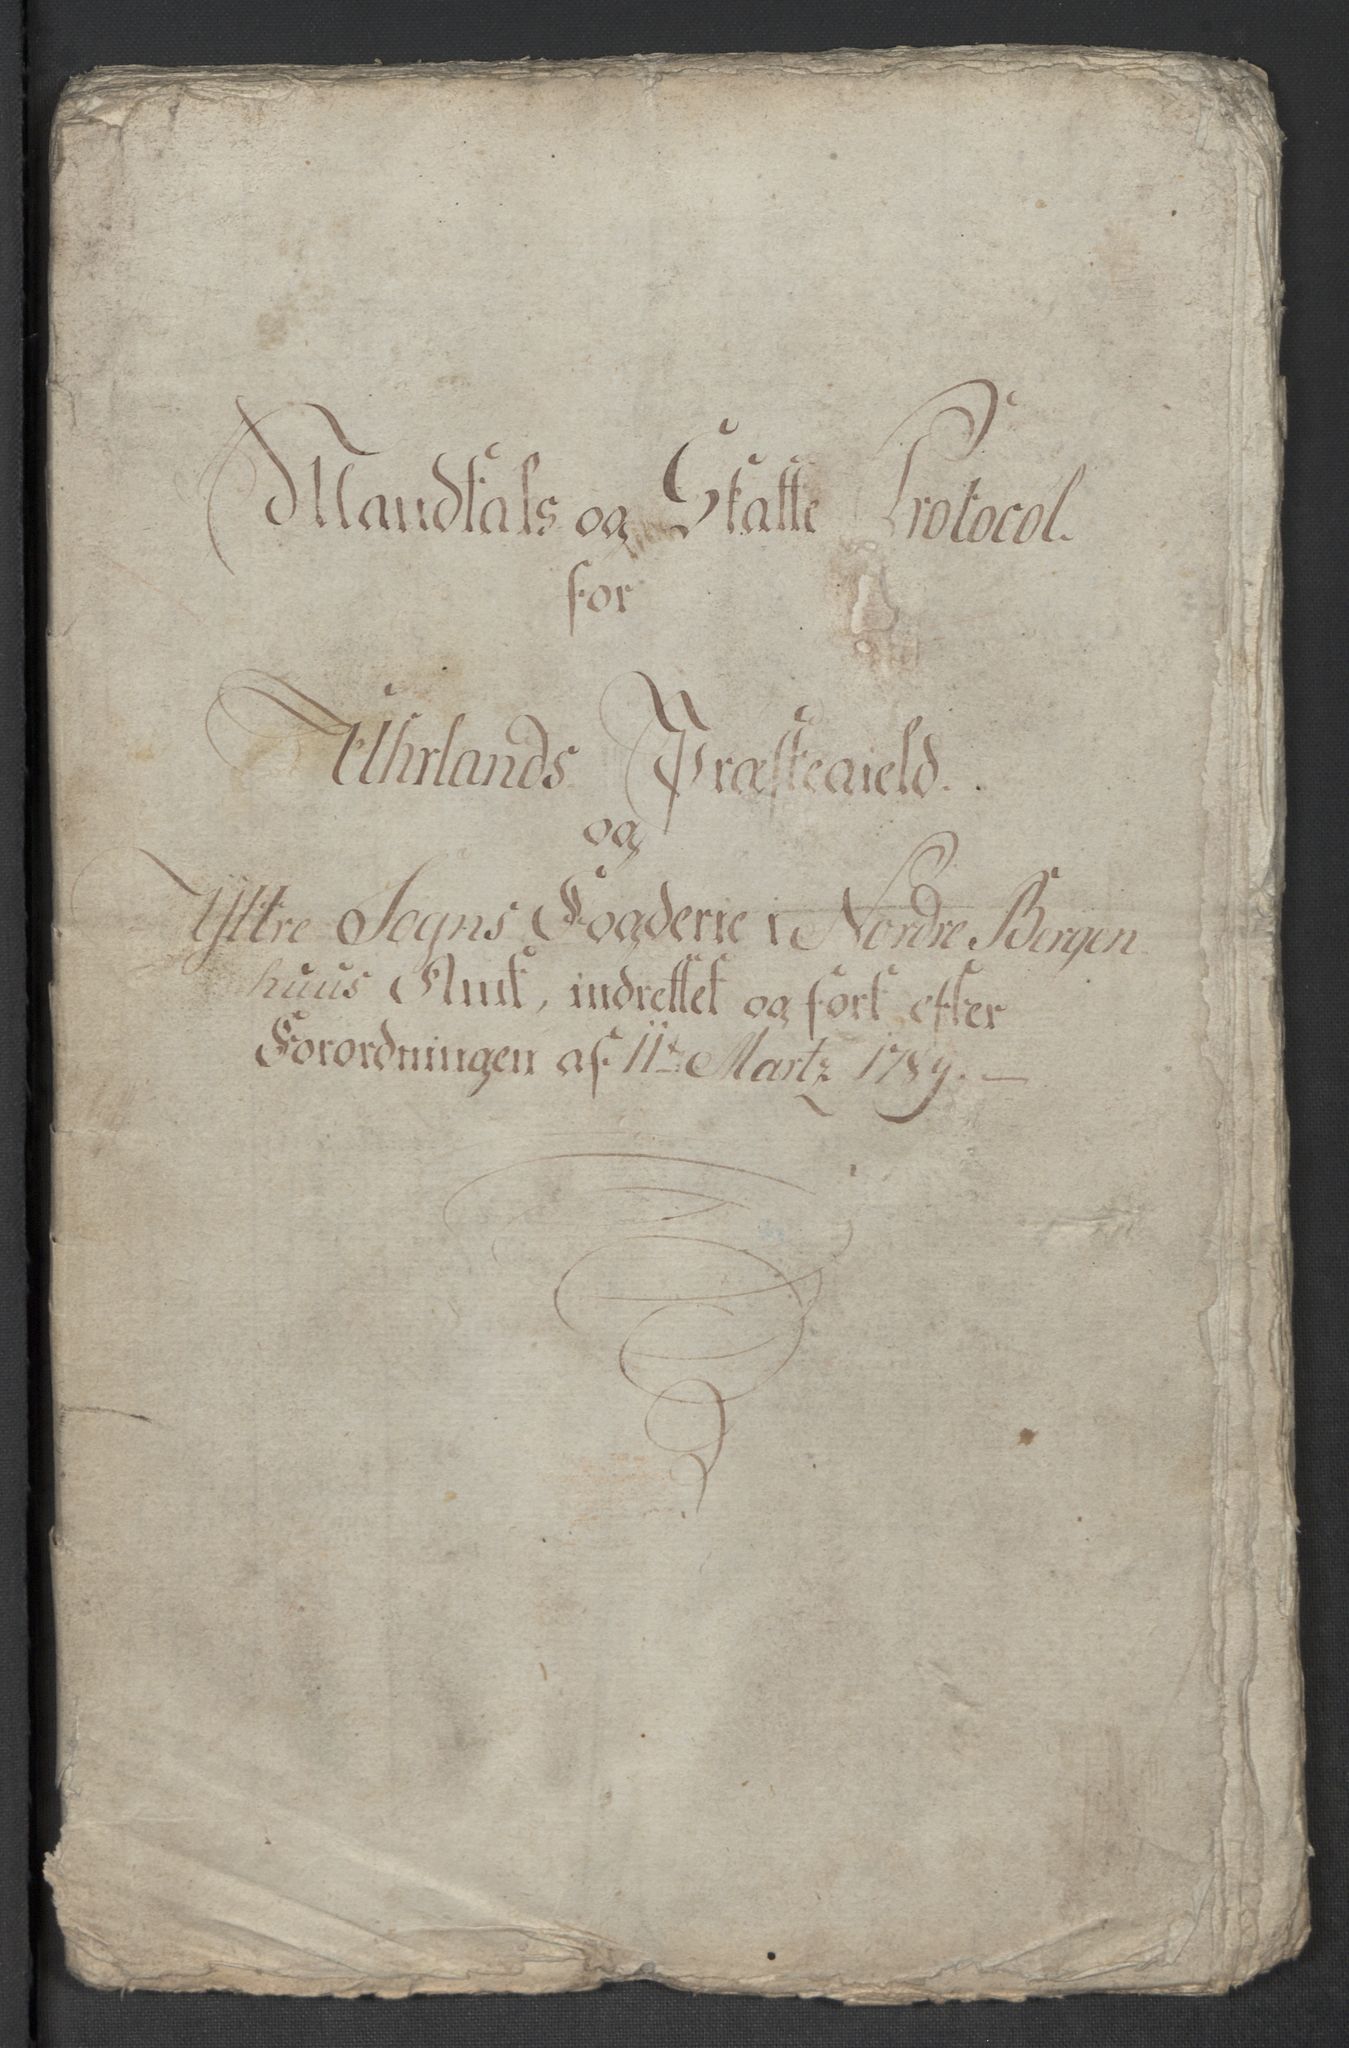 Mandtals og Skatte Protocol.
for
Uhrlands Præstegield.
og
Yttre Sogns Fogderie i Nordre Bergen
huus Amt, indrettet og ført efter
Forordningen af 11te Martz 1789. —